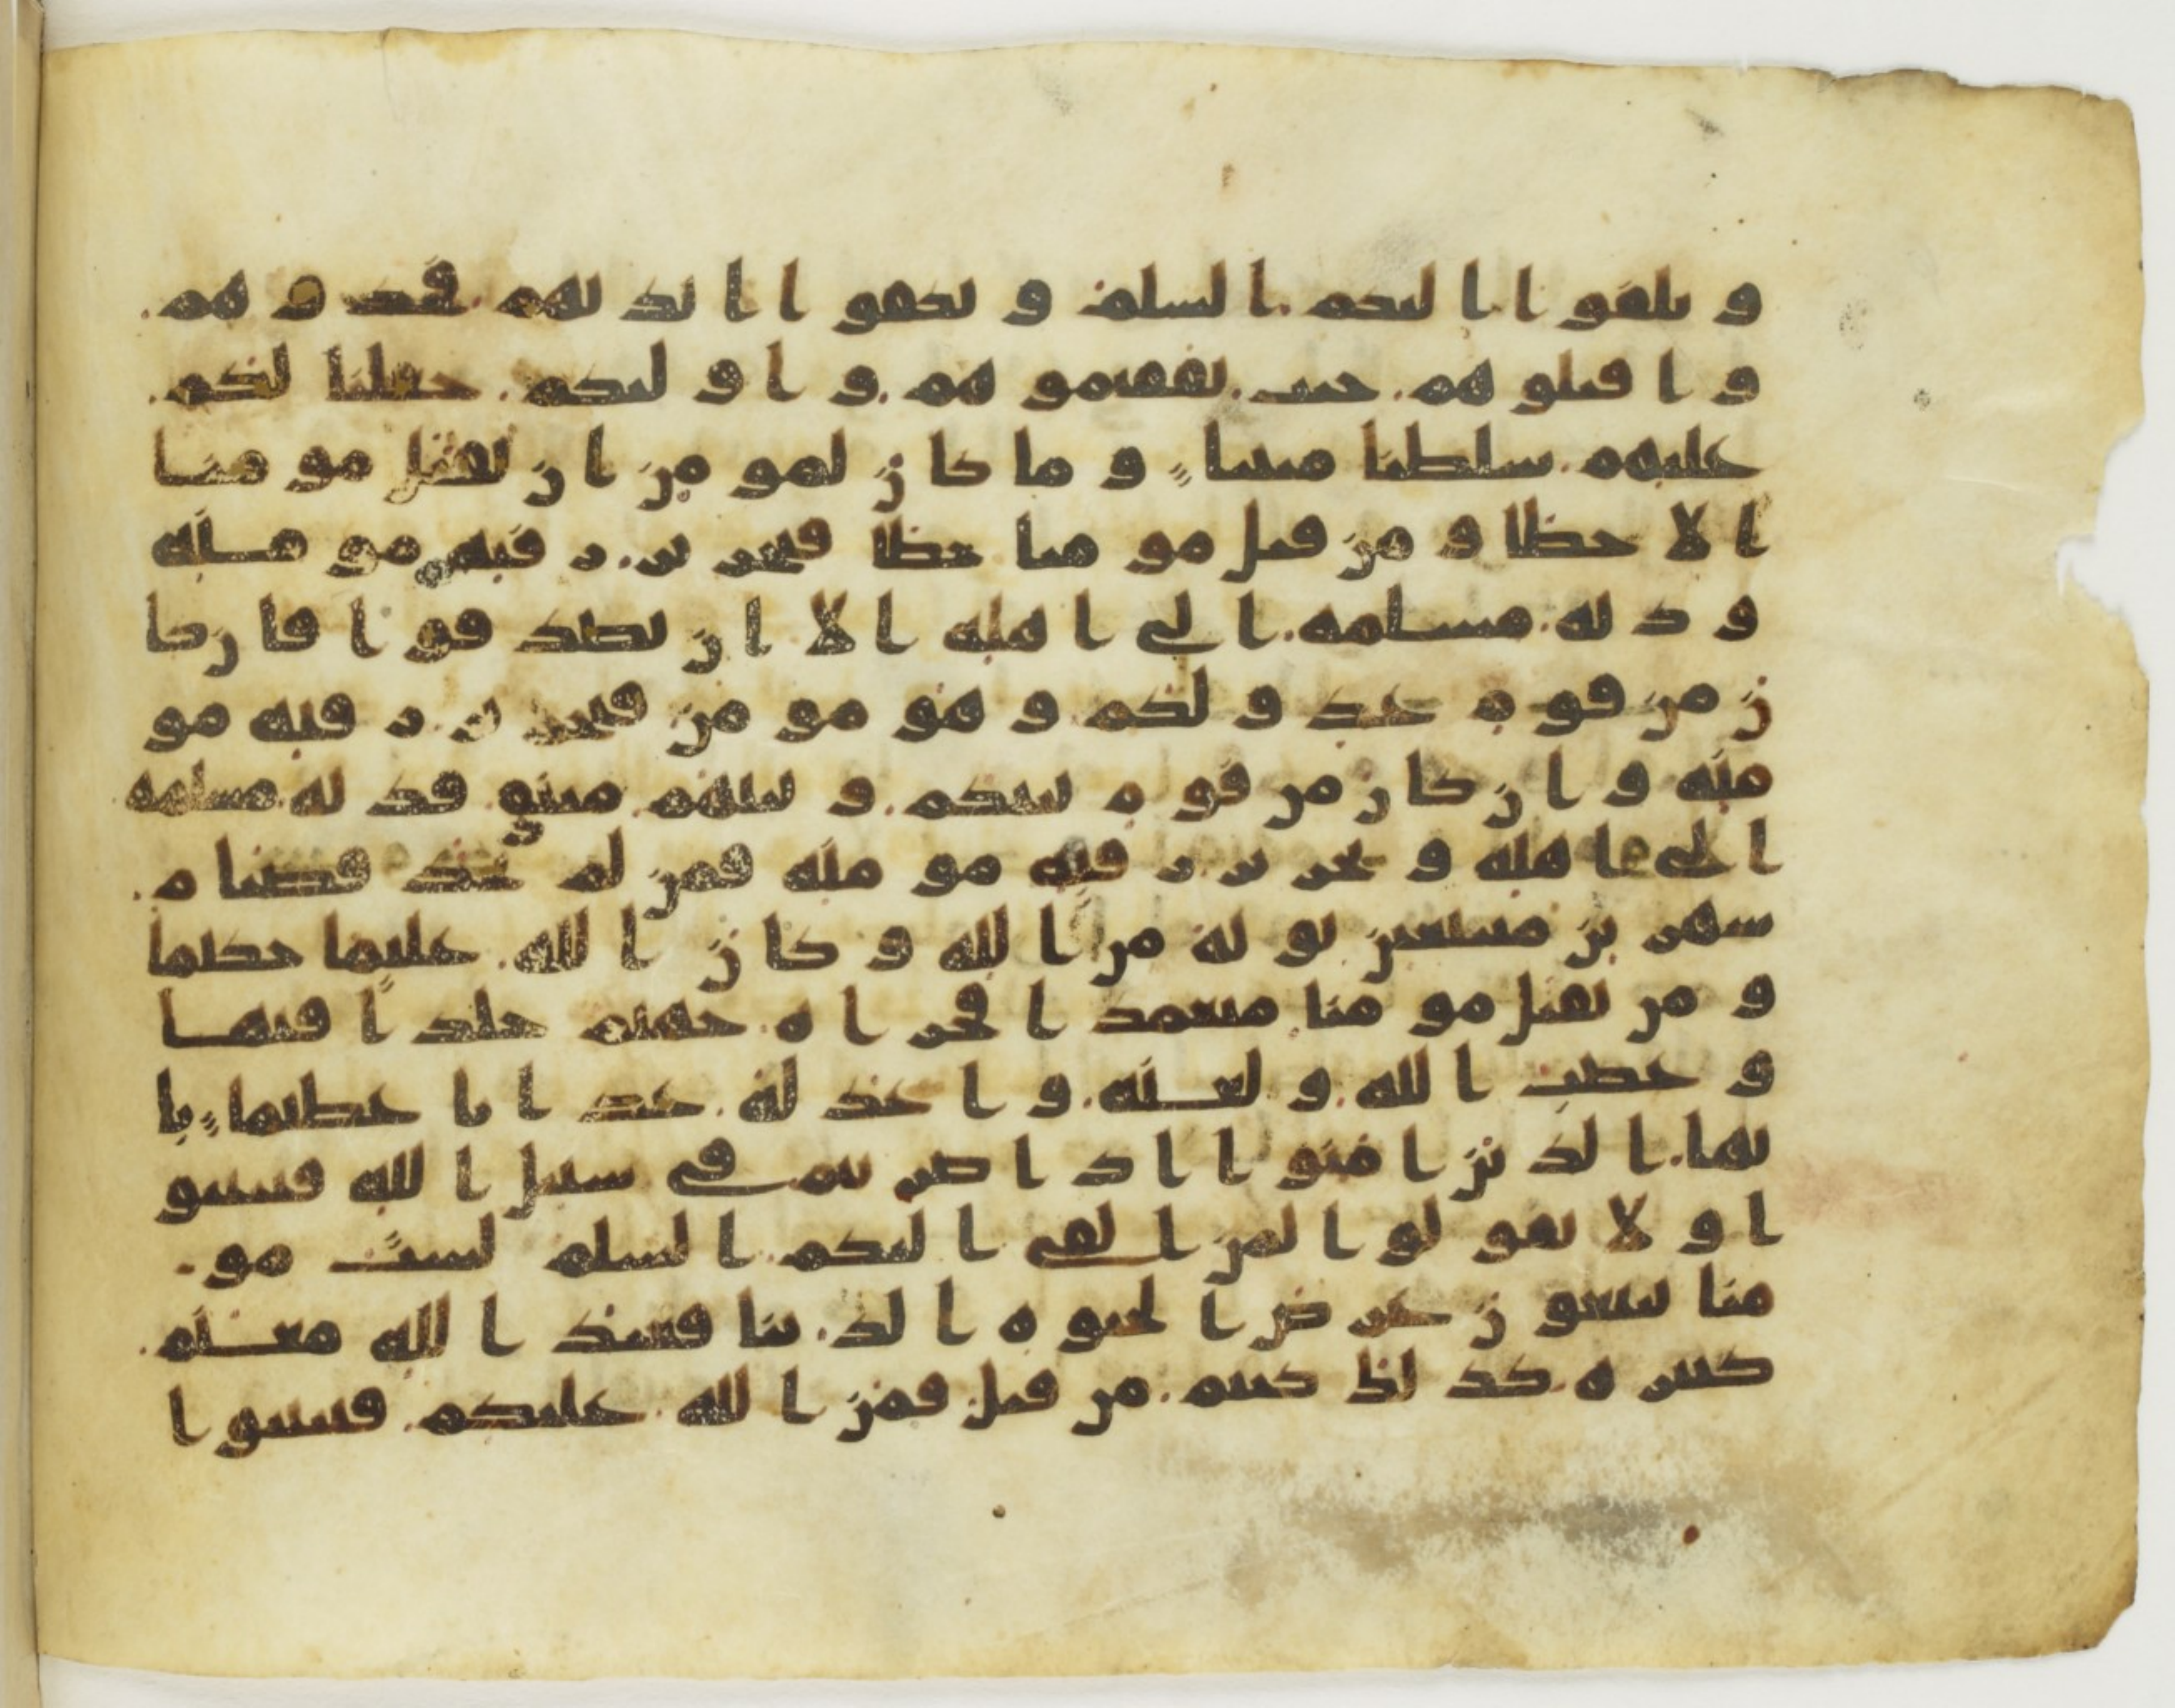 ويلقوا اليكم السلم ويكفوا ايديهم فخذوهم
واقتلوهم حيث ثقفتموهم واوليكم جعلنا لكم
عليهم سلطنا مبينا وما كان لمومن ان يقتل مومنا
الا خطا ومن قتل مومنا خطا فتحرير رقبه مومنه
وديه مسلمه الى اهله الا ان يصدقوا فان كا
ن من قوم عدو لكم وهو مومن فتحرير رقبه مو
منه وان كان من قوم بينكم وبينهم ميثق فديه مسلمه
الى اهله وتحرير رقبه مومنه فمن لم يجد فصيام
شهرين متتبعين توبه من الله وكان الله عليما حكيما
ومن يقتل مومنا متعمدا فجزاه جهنم خلدا فيها
وغضب الله ولعنه واعد له عذابا عظيما يا
يها الذين امنوا اذا ضربتم في سبيل الله فتبينو
ا ولا تقولوا لمن القى اليكم السلم لست مو
منا تبتغون عرض الحيوه الدنيا فعند الله مغنم
كثيره كذلك كنتم من قبل فمن الله عليكم فتبينوا